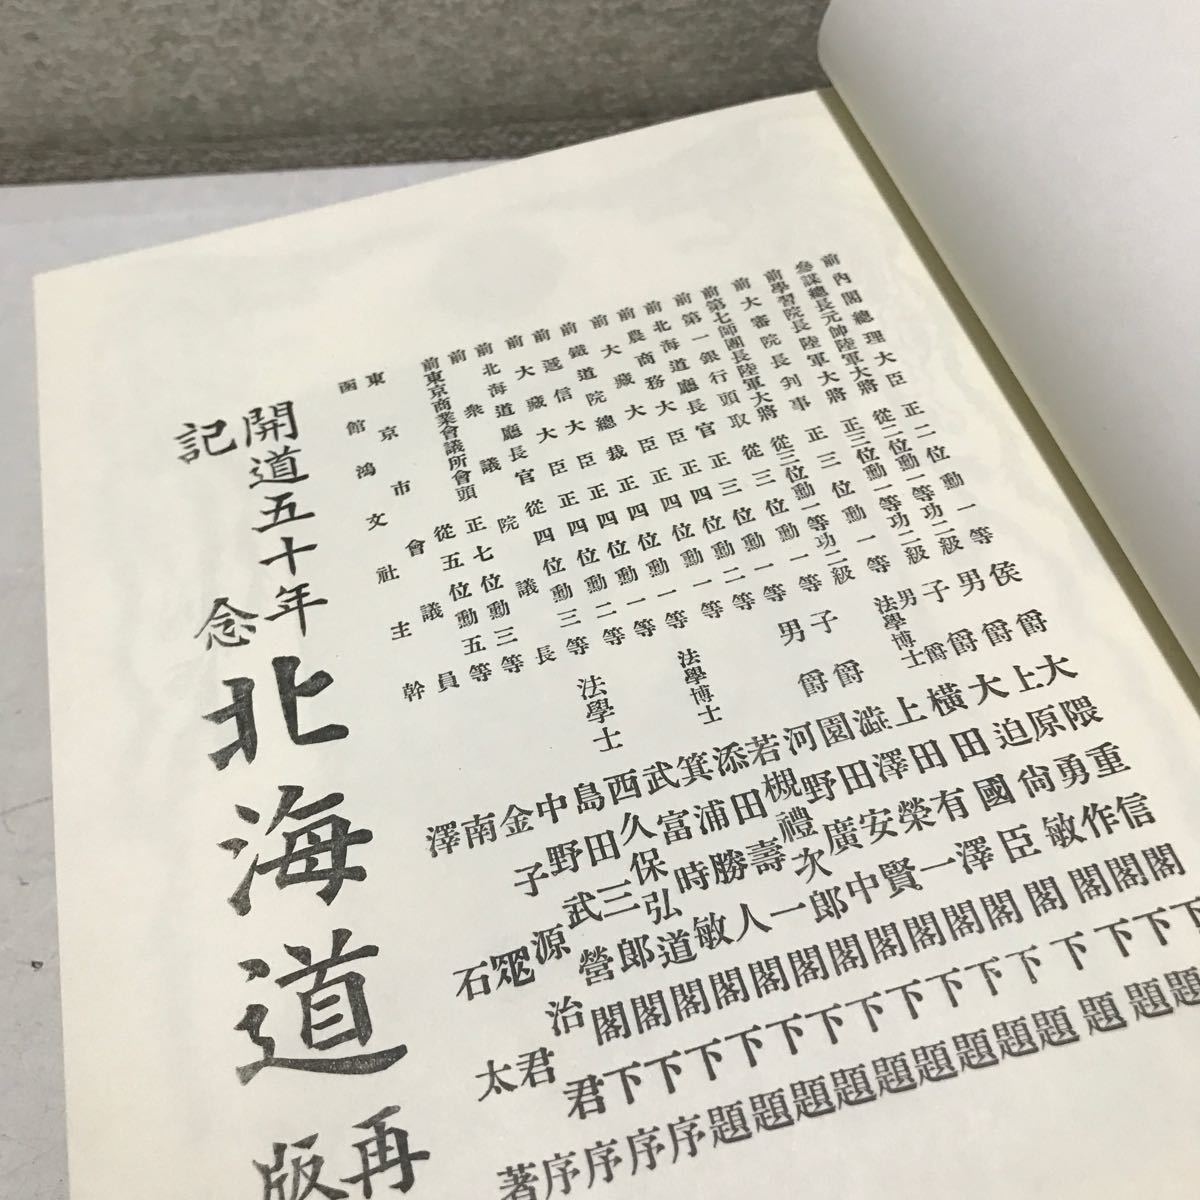 前內閣總理大臣 正二位勳一等 侯爵 大隈重信閣下題
參謀總長元帥陸軍大將 從二位勳一等功二級 男爵 上原勇作閣下題
前學習院長陸軍大將 正三位勳一等功二級 子爵 大迫尙敏閣下題
前大審院長判事 正三位勳一等 男爵 法學博士 橫田國臣閣下題
前第七師團長陸軍大將 從三位勳一等功二級 上田有澤閣下題
前第一銀行頭取 從三位勳一等 子爵 澁澤榮一閣下題
前北海道廳長官 正三位勳二等 男爵 園田安賢閣下題
前農商務大臣 正四位勳一等 河野廣中閣下題
前大藏大臣 正四位勳一等 若槻禮次郎閣下題
前鐵道院總裁 正四位勳一等 法學博士 添田壽一閣下題
前遞信大臣 正四位勳一等 箕浦勝人閣下題
前大藏大臣 武富時敏閣下題
前北海道廳長官 從四位勳三等 法學士 西久保弘道閣下序
前衆議院議長 島田三郎閣下序
前東京商業會議所會頭 正七位勳三等 中野武營閣下序
前東京市會議員 從五位勳五等 金子源治君序
函館鴻文社主幹 南君序
澤石太著
開道五十年記念 北海道 再版